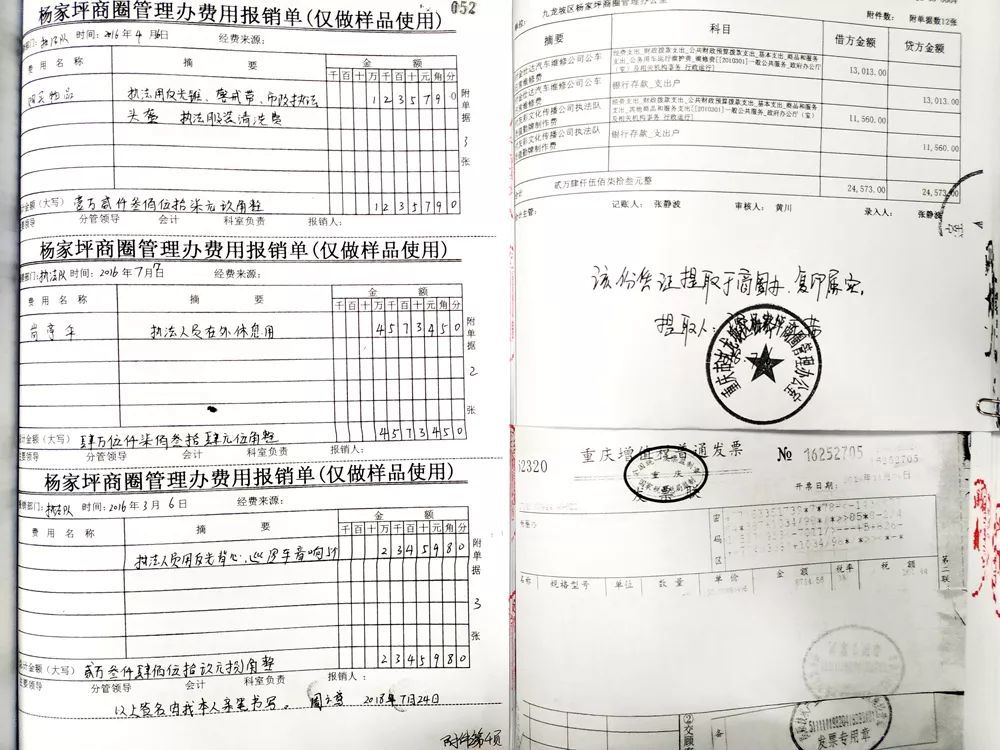 杨家坪商圈管理办费用报销单(仅做样品使用)
052
部门:执法队 时间:2016年4月6日 经费来源:
费用名称 摘要 金额
千百十万千百十元角分
执法用反光锥、警戒带、市政执法
1235790
头盔 执法服装清洗费
附单据3张
合金额(大写) 壹万贰仟叁佰伍拾柒元玖角整 1235790
分管领导 会计 科室负责 报销人:
杨家坪商圈管理办费用报销单(仅做样品使用)
部门:执法队 时间:2016年7月7日 经费来源:
费用名称 摘要 金额
千百十万千百十元角分
岗亭伞 执法人员在外休息用 4573450
附单据2张
计金额(大写) 肆万伍仟柒佰叁拾肆元伍角整 4573450
分管领导 会计 科室负责 报销人:
杨家坪商圈管理办费用报销单(仅做样品使用)
部门:执法队 时间:2016年3月6日 经费来源:
费用名称 摘要 金额
千百十万千百十元角分
执法人员用反光背心、巡逻车音响 2345980
附单据3张
计金额(大写) 贰万叁仟肆佰伍拾玖元捌角整 2345980
主要领导 分管领导 会计 科室负责 报销人:
以上签名由我本人亲笔书写。 2018年7月24日
附件第4页
九龙坡区杨家坪商圈管理办公室
附件数: 附单据数12张
摘要 科目 借方金额 贷方金额
金仕达汽车维修公司公车
维修费
经费支出_财政拨款支出_公共财政预算拨款支出_基本支出_商品和服务
支出_公务用车运行维护费_维修费[[2010301]一般公共服务_政府办公厅
(室)及相关机构事务_行政运行]
13,013.00
仕达汽车维修公司公车
维修费
银行存款_支出户
13,013.00
彩文化传播公司执法队
勤牌制作费
经费支出_财政拨款支出_公共财政预算拨款支出_基本支出_商品和服务
支出_其他商品和服务支出[[2010301]一般公共服务_政府办公厅(室)
及相关机构事务_行政运行]
11,560.00
友彩文化传播公司执法队
勤牌制作费
银行存款_支出户
11,560.00
贰万肆仟伍佰柒拾叁元整 24,573.00 24,573.00
主管: 记账人: 张静波 审核人: 黄川 录入人: 张静波
该份凭证提取于商圈办、复印属实。
提取人:
重庆市九龙坡区杨家坪商圈管理办公室
52320
重庆增值税普通发票
№ 16252705
16252705
开票日期:
密码区
名称 规格型号 单位 数量 单价 金额 税率 税额
第二联
发票专用章
②交顾
备